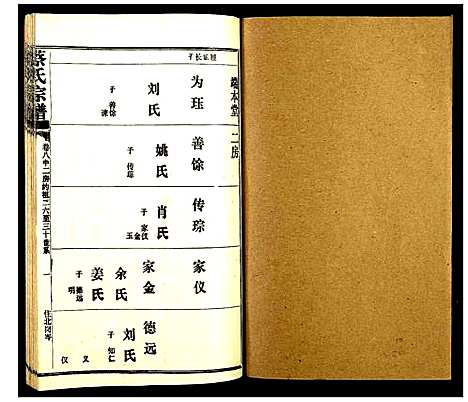 端本堂 二房
程证长子
为珏
刘氏
子 善馀
谏
善馀
姚氏
子 传琮
传琮
肖氏
子 家仪
家金
玉
家仪
家金
余氏
姜氏
子 德远
明
德远
刘氏
子 知仁
义
仪
蔡氏宗谱
卷八中二房约祖二六至三十世系
一
住北岗岑